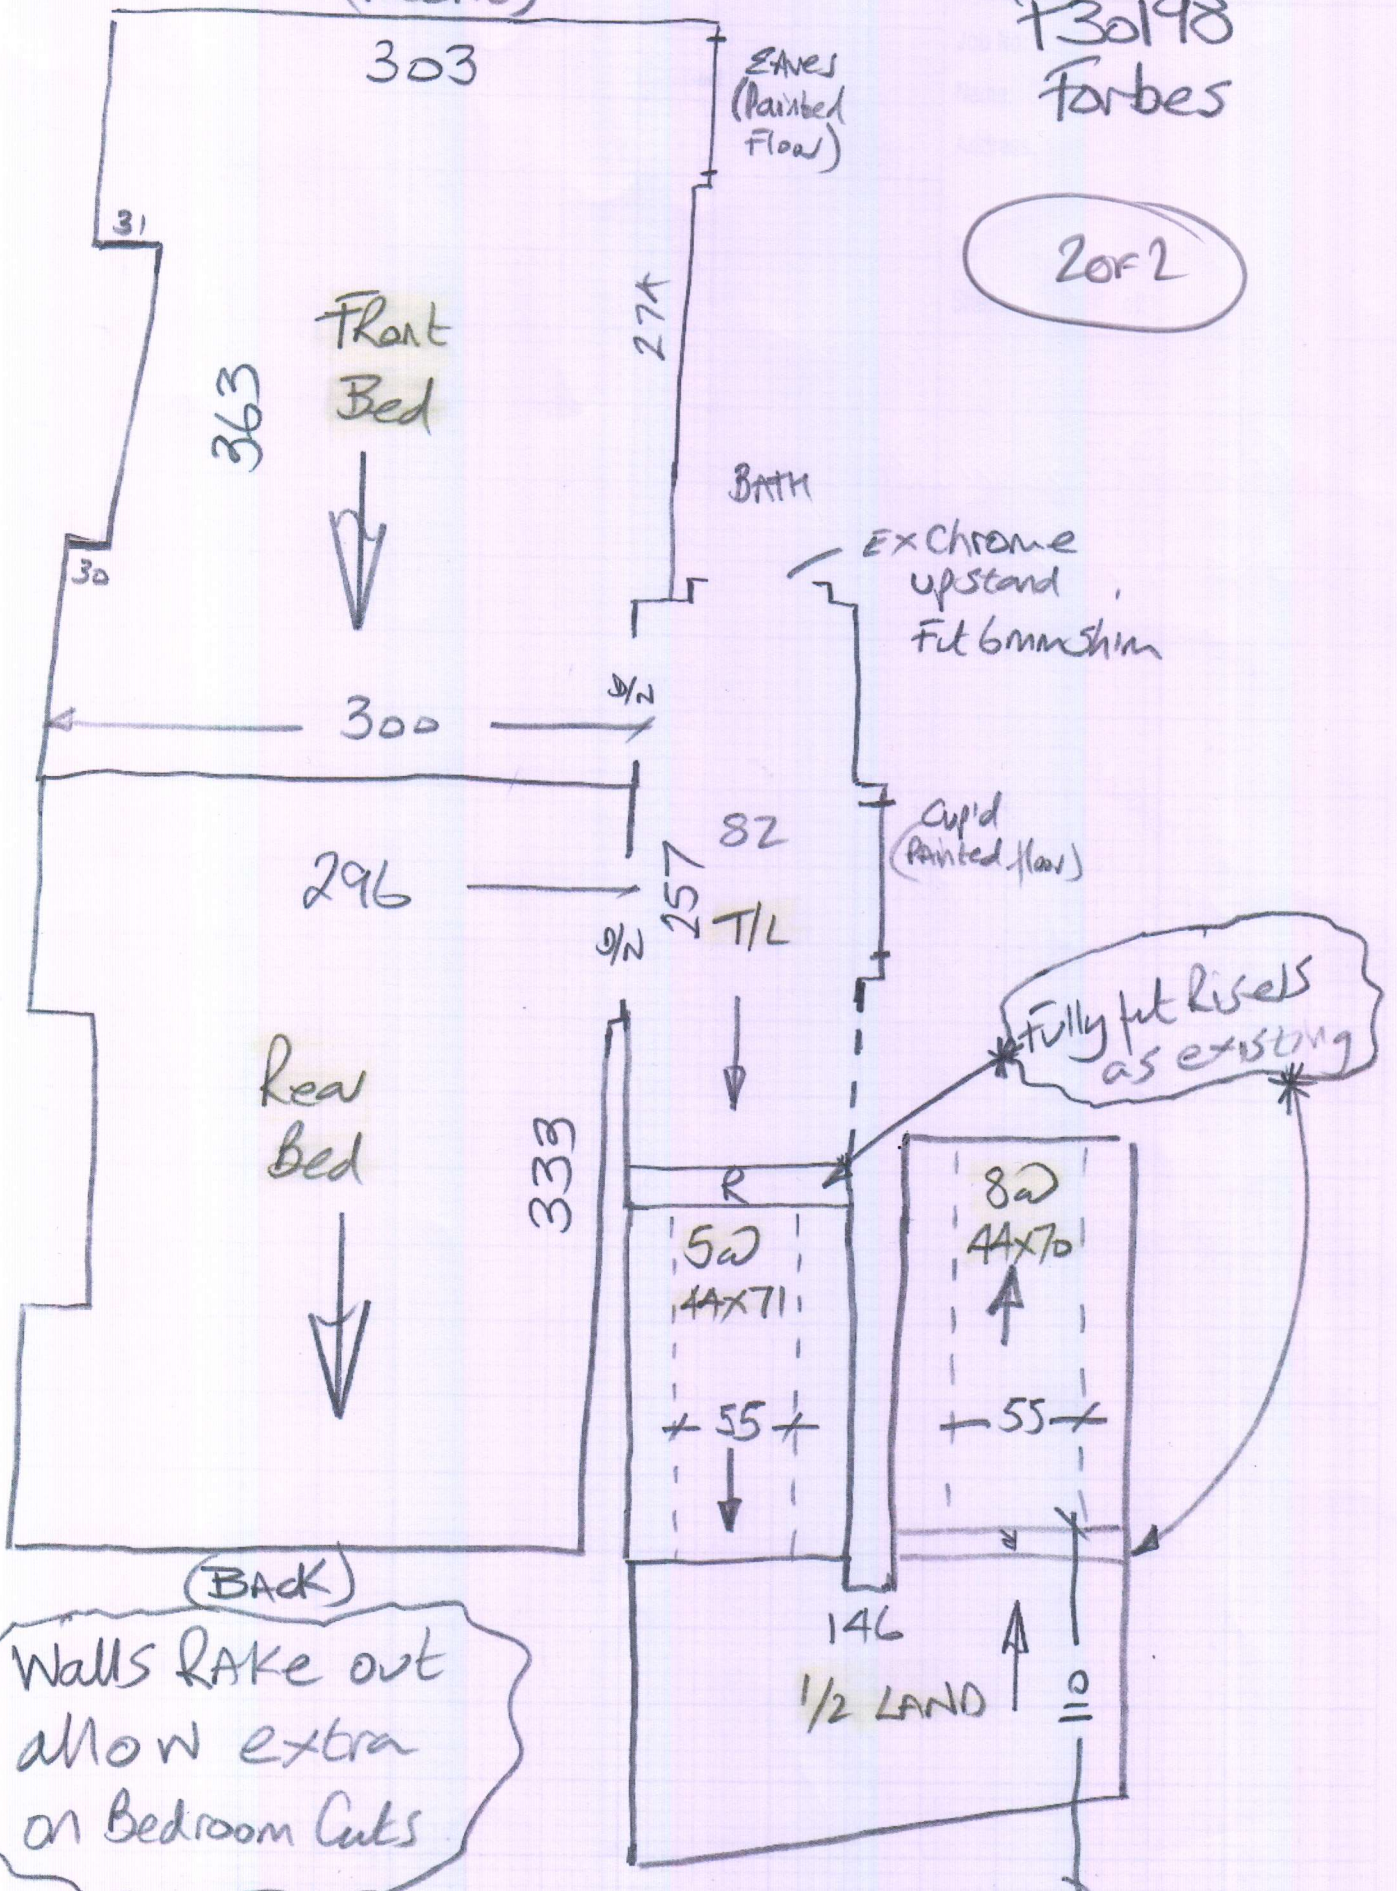 303
T30198
Forbes
2 of 2
Eaves
(Painted
Floor)
31
274
Front
Bed
363
BATH
Ex Chrome
upstand
Fit 6mm Shim
30
D/N
300
82
Cup'd
(Painted floor)
296
257
T/L
D/N
Fully fit Risers
as existing
Rear
Bed
333
R
5@
44x71
8@
44x70
55
55
(BACK)
146
1/2 LAND
110
Walls RAKE out
allow extra
on Bedroom Cuts